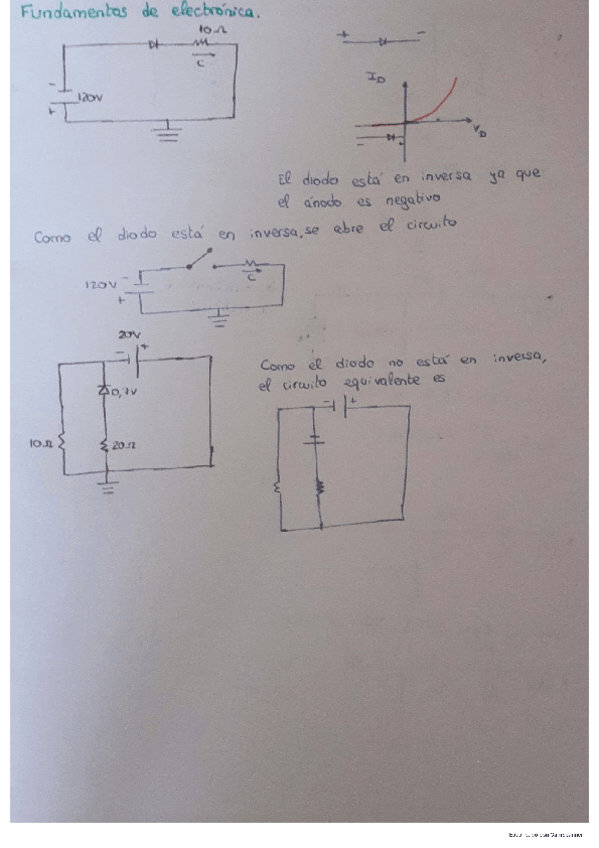 Fundamentos de electrónica.
10Ω
+ -
C
I_D
-
120V
+
V_D
El diodo está en inversa ya que
el ánodo es negativo
Como el diodo está en inversa, se abre el circuito
120V -
+
C
20V
- +
0,7V
10Ω
20Ω
Como el diodo no está en inversa,
el circuito equivalente es
- +